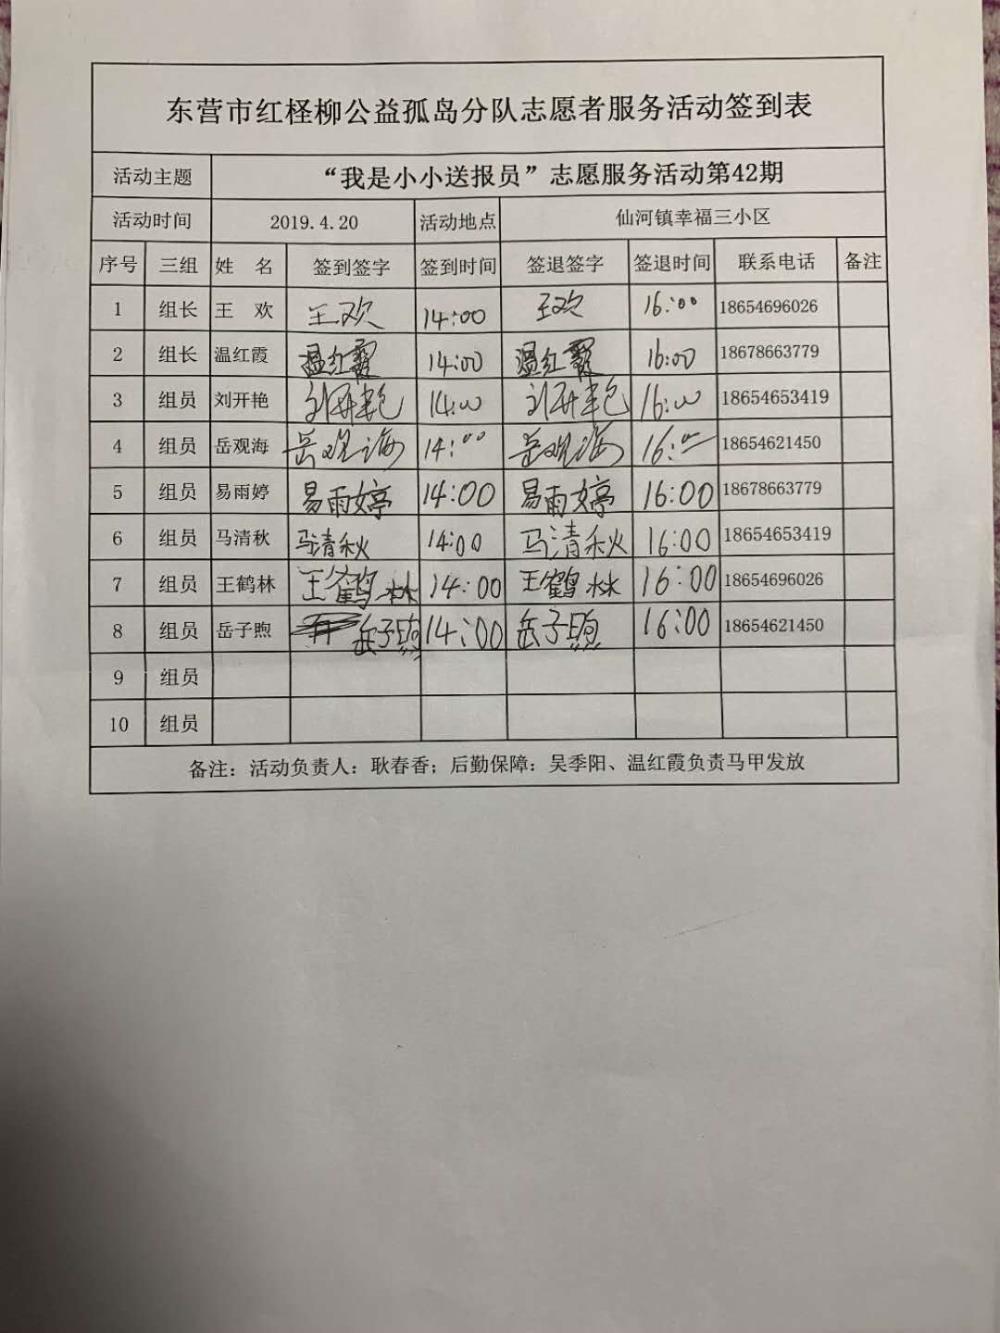 东营市红柽柳公益孤岛分队志愿者服务活动签到表
活动主题 “我是小小送报员”志愿服务活动第42期
活动时间 2019.4.20 活动地点 仙河镇幸福三小区
序号 三组 姓 名 签到签字 签到时间 签退签字 签退时间 联系电话 备注
1 组长 王 欢 王欢 14:00 王欢 16:00 18654696026
2 组长 温红霞 温红霞 14:00 温红霞 16:00 18678663779
3 组员 刘开艳 刘开艳 14:00 刘开艳 16:00 18654653419
4 组员 岳观海 岳观海 14:00 岳观海 16:00 18654621450
5 组员 易雨婷 易雨婷 14:00 易雨婷 16:00 18678663779
6 组员 马清秋 马清秋 14:00 马清秋 16:00 18654653419
7 组员 王鹤林 王鹤林 14:00 王鹤林 16:00 18654696026
8 组员 岳子煦 岳子煦 14:00 岳子煦 16:00 18654621450
9 组员
10 组员
备注：活动负责人：耿春香；后勤保障：吴季阳、温红霞负责马甲发放